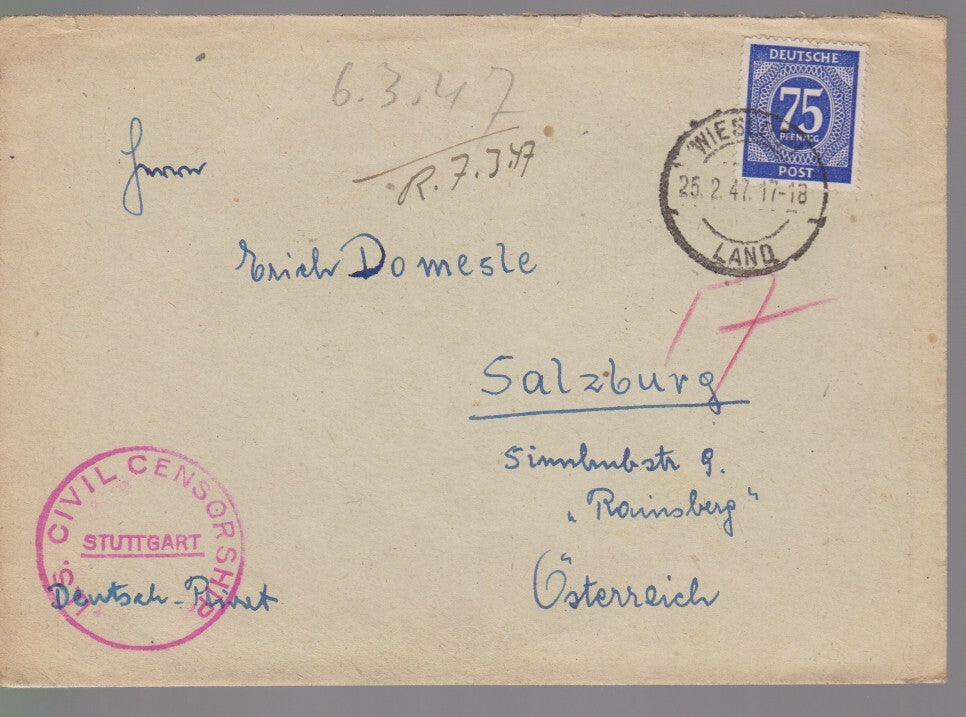 6.3.47
R. 7.3.47
DEUTSCHE
75
PFENNIG
POST
WIES
25.2.47.17-18
LAND
Herrn
Erich Domesle
17
Salzburg
Sinnhubstr 9.
„Rainsberg"
Österreich
U.S. CIVIL CENSORSHIP
STUTTGART
Deutsch-Privat